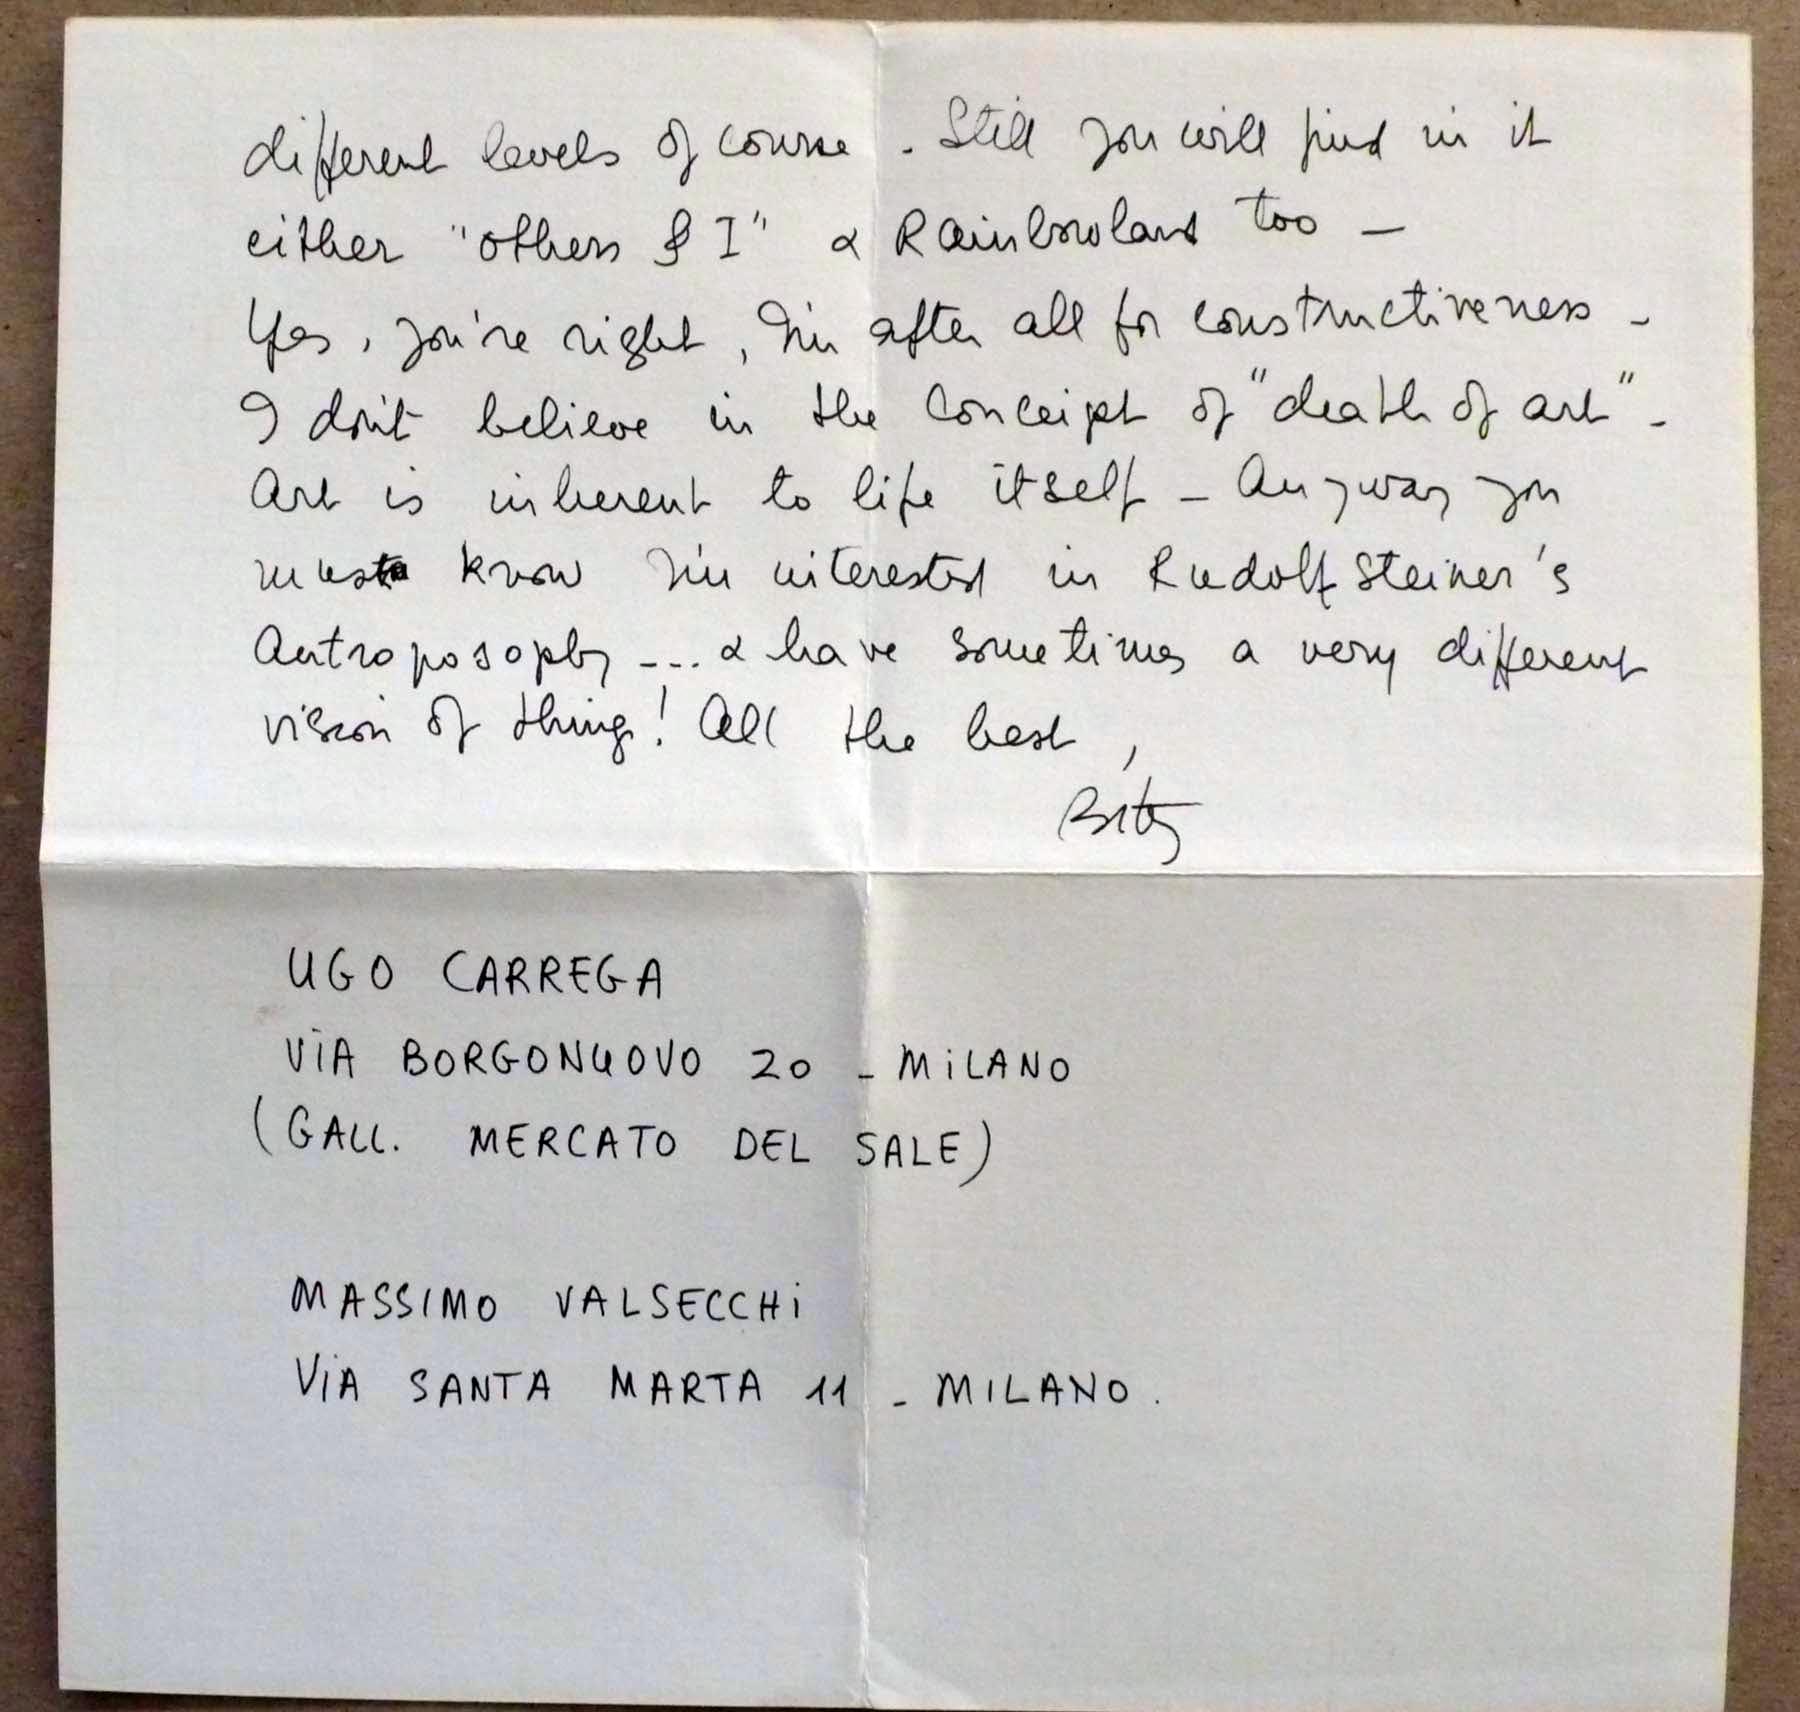 different levels of course . Still you will find in it
either "others & I" & Rainbowland too –
Yes, you're right, I'm after all for constructiveness –
I don't believe in the conceipt of "death of art" –
Art is inherent to life itself – Anyway you
must know I'm interested in Rudolf Steiner's
Antroposophy --... & have sometimes a very different
vision of things! All the best,
Betty
UGO CARREGA
ViA BORGONUOVO 20 – MiLANO
(GALL. MERCATO DEL SALE)
MASSIMO VALSECCHi
ViA SANTA MARTA 11 – MILANO.